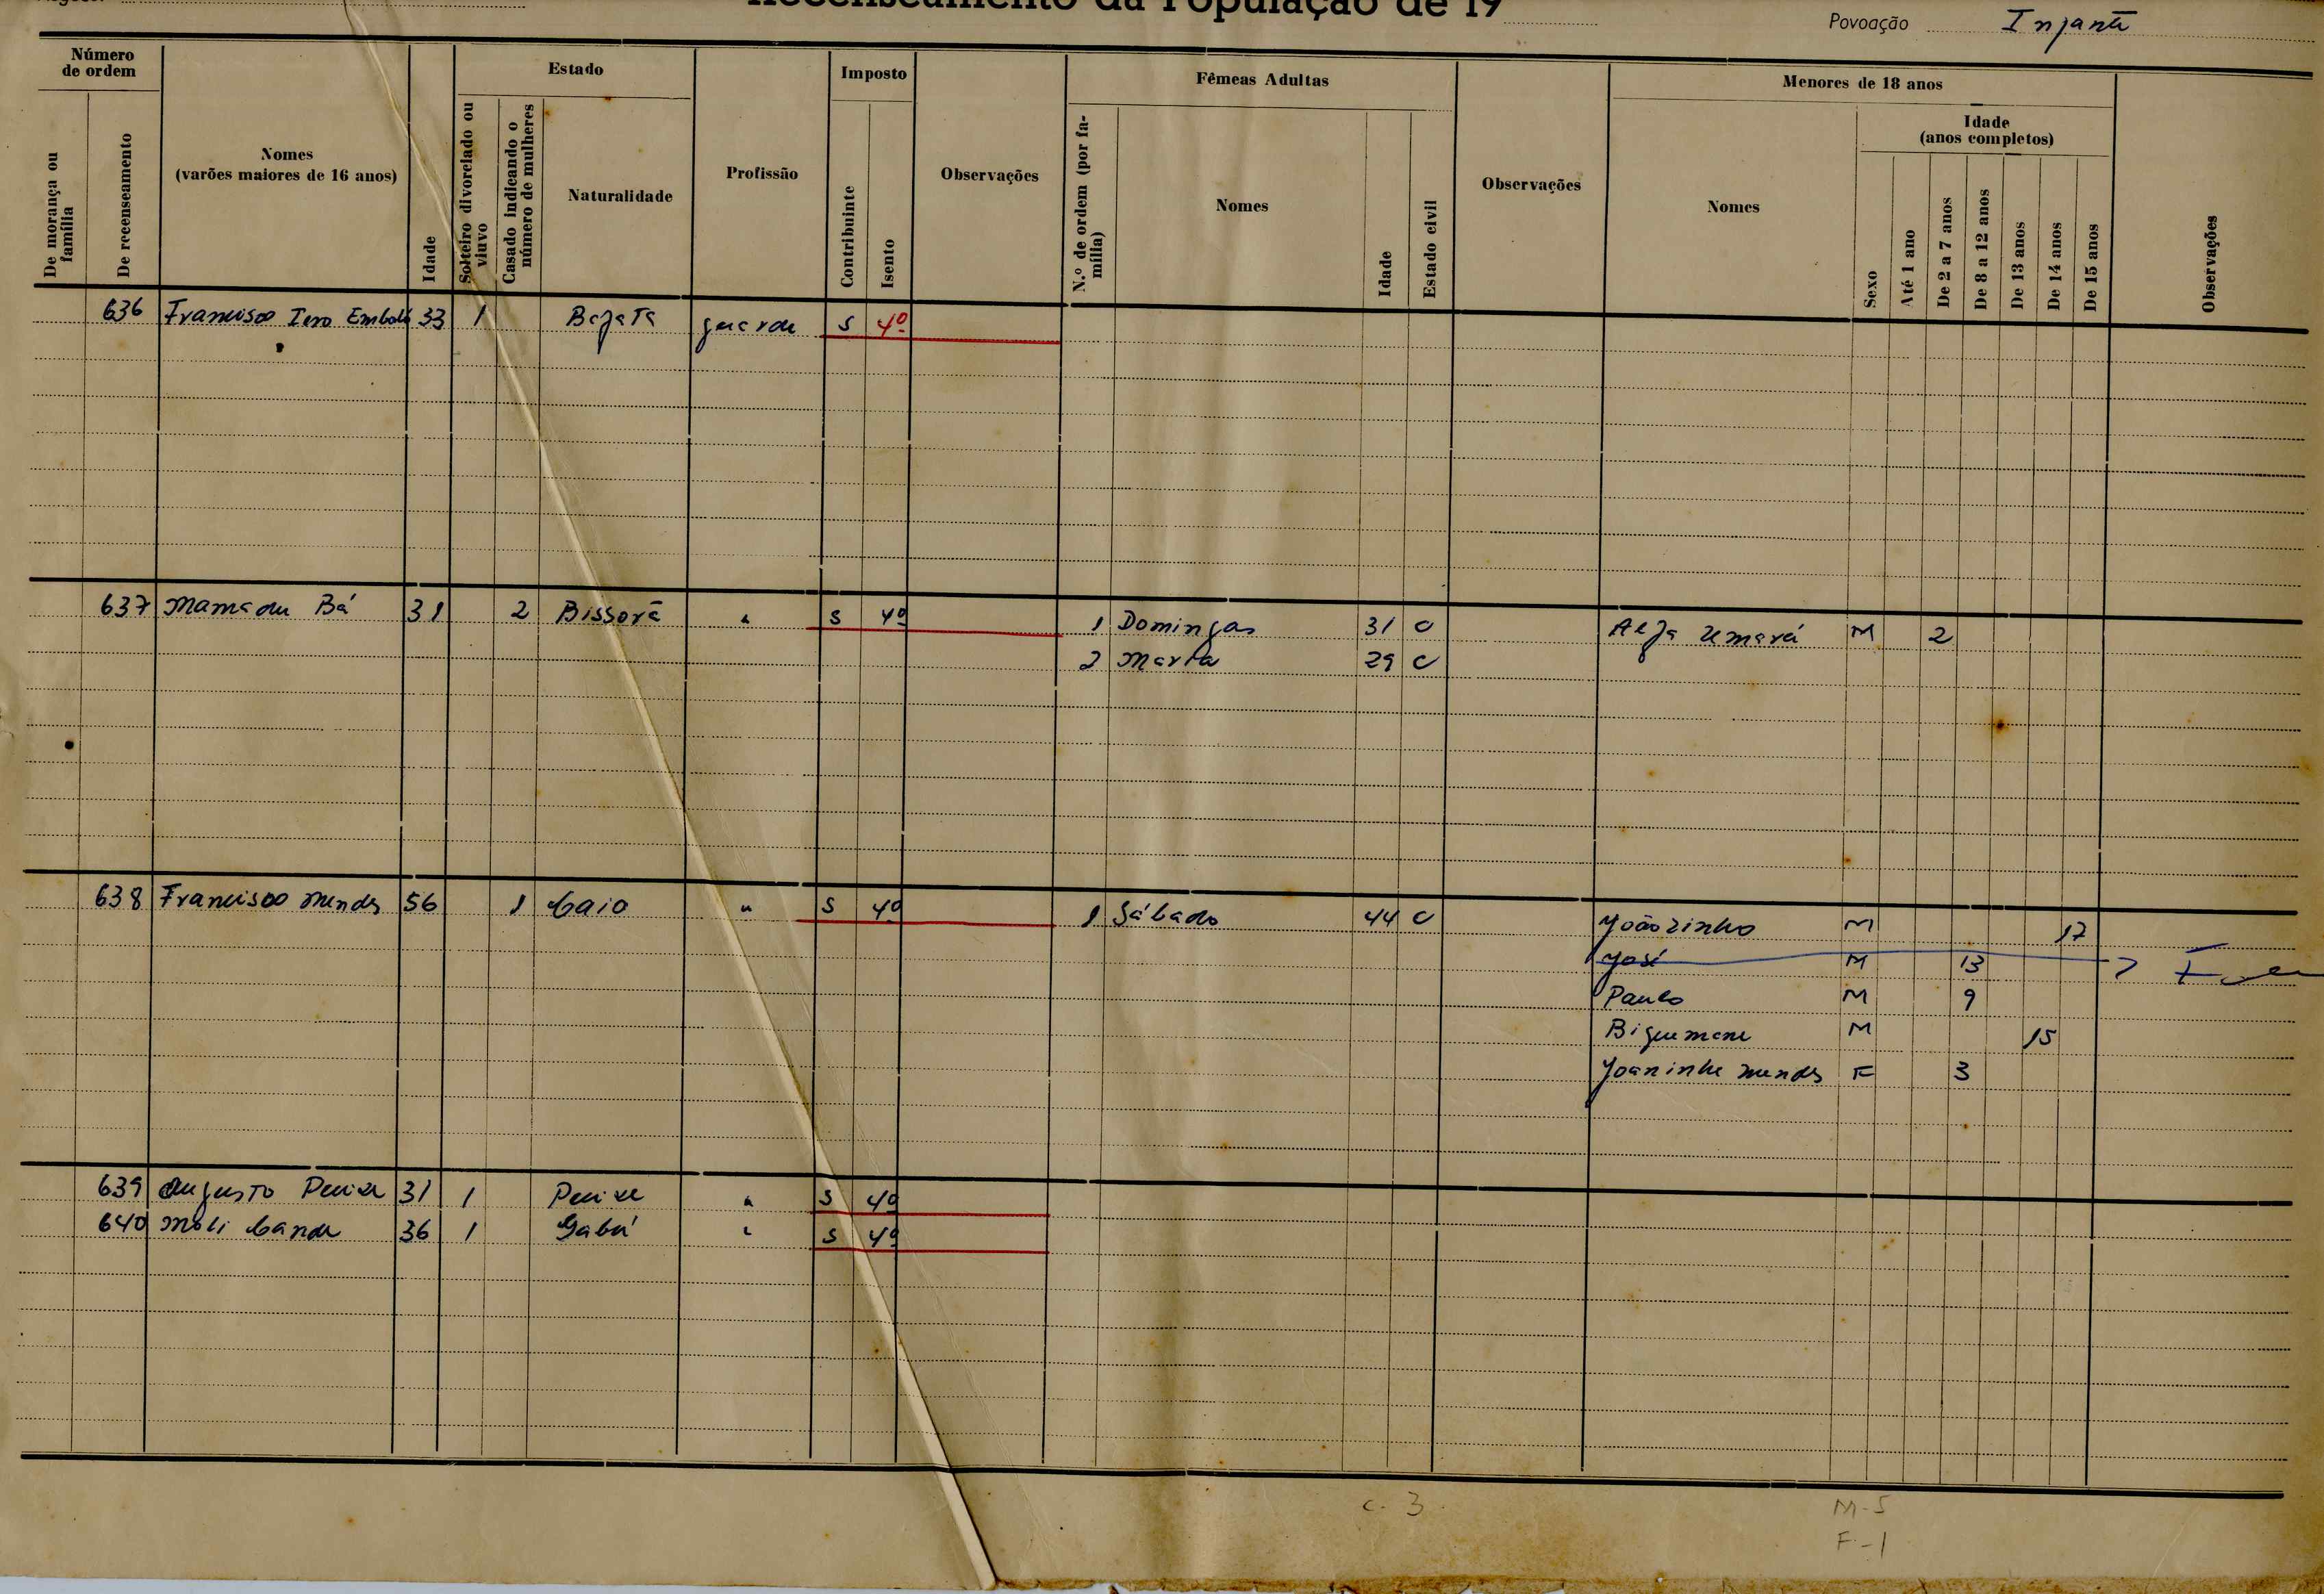 Recenseamento da População de 19
Povoação Injantã
Número de ordem
De morança ou família
De recenseamento
Nomes (varões maiores de 16 anos)
Idade
Estado
Solteiro divorciado ou viuvo
Casado indicando o número de mulheres
Naturalidade
Profissão
Imposto
Contribuinte
Isento
Observações
Fêmeas Adultas
N.º de ordem (por família)
Nomes
Idade
Estado civil
Observações
Menores de 18 anos
Nomes
Sexo
Idade (anos completos)
Até 1 ano
De 2 a 7 anos
De 8 a 12 anos
De 13 anos
De 14 anos
De 15 anos
Observações
636 Francisco Iero Embaló 33 1 Bafatá guarda S 4º
637 Mamadu Bá 31 2 Bissorã " S 4º 1 Domingas 31 C Alfa Umaró M 2
2 Maria 29 C
638 Francisco Mendes 56 1 Caio " S 4º 1 Sábado 44 C Joãozinho M 17
José M 13
Paulo M 9
Bigumane M 15
Joaninha Mendes F 3
639 Augusto Pecixe 31 1 Pecixe " S 4º
640 Máli Cande 36 1 Gabú " S 4º
C. 3
M-5
F-1